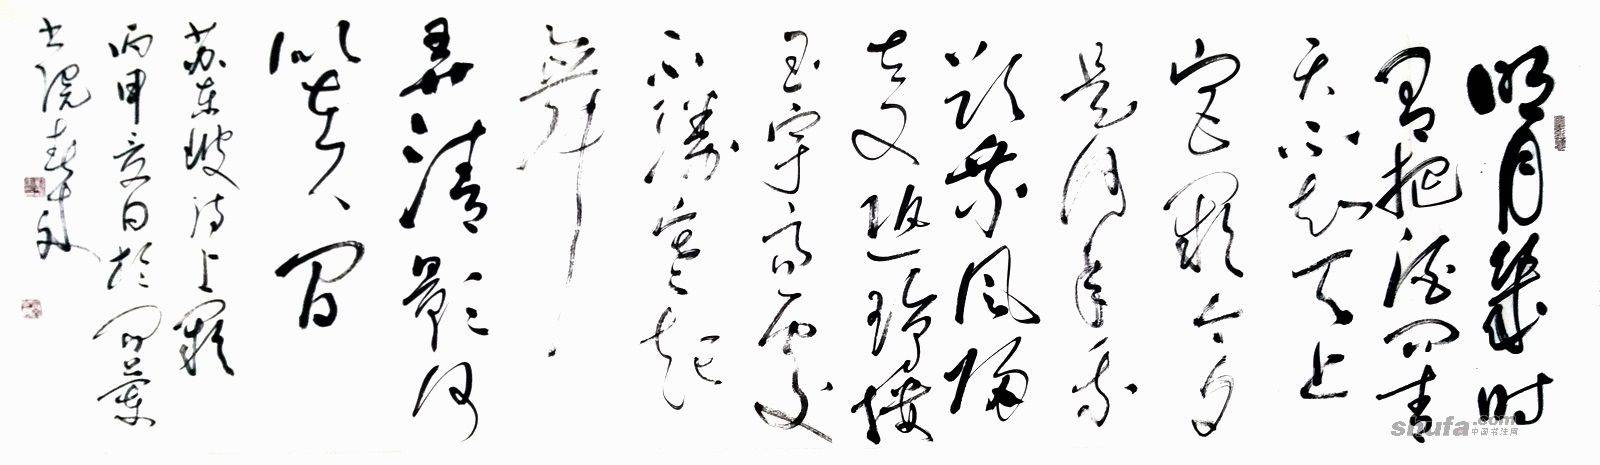 明月幾时
有把酒问青
天不知天上
宫阙今夕
是何年我
欲乘風归
去又恐瓊楼
玉宇高处
不勝寒起
舞
弄清影何
似在人间
苏东坡诗上阙
丙申夏日於
书院
shufa.com
中国书法网